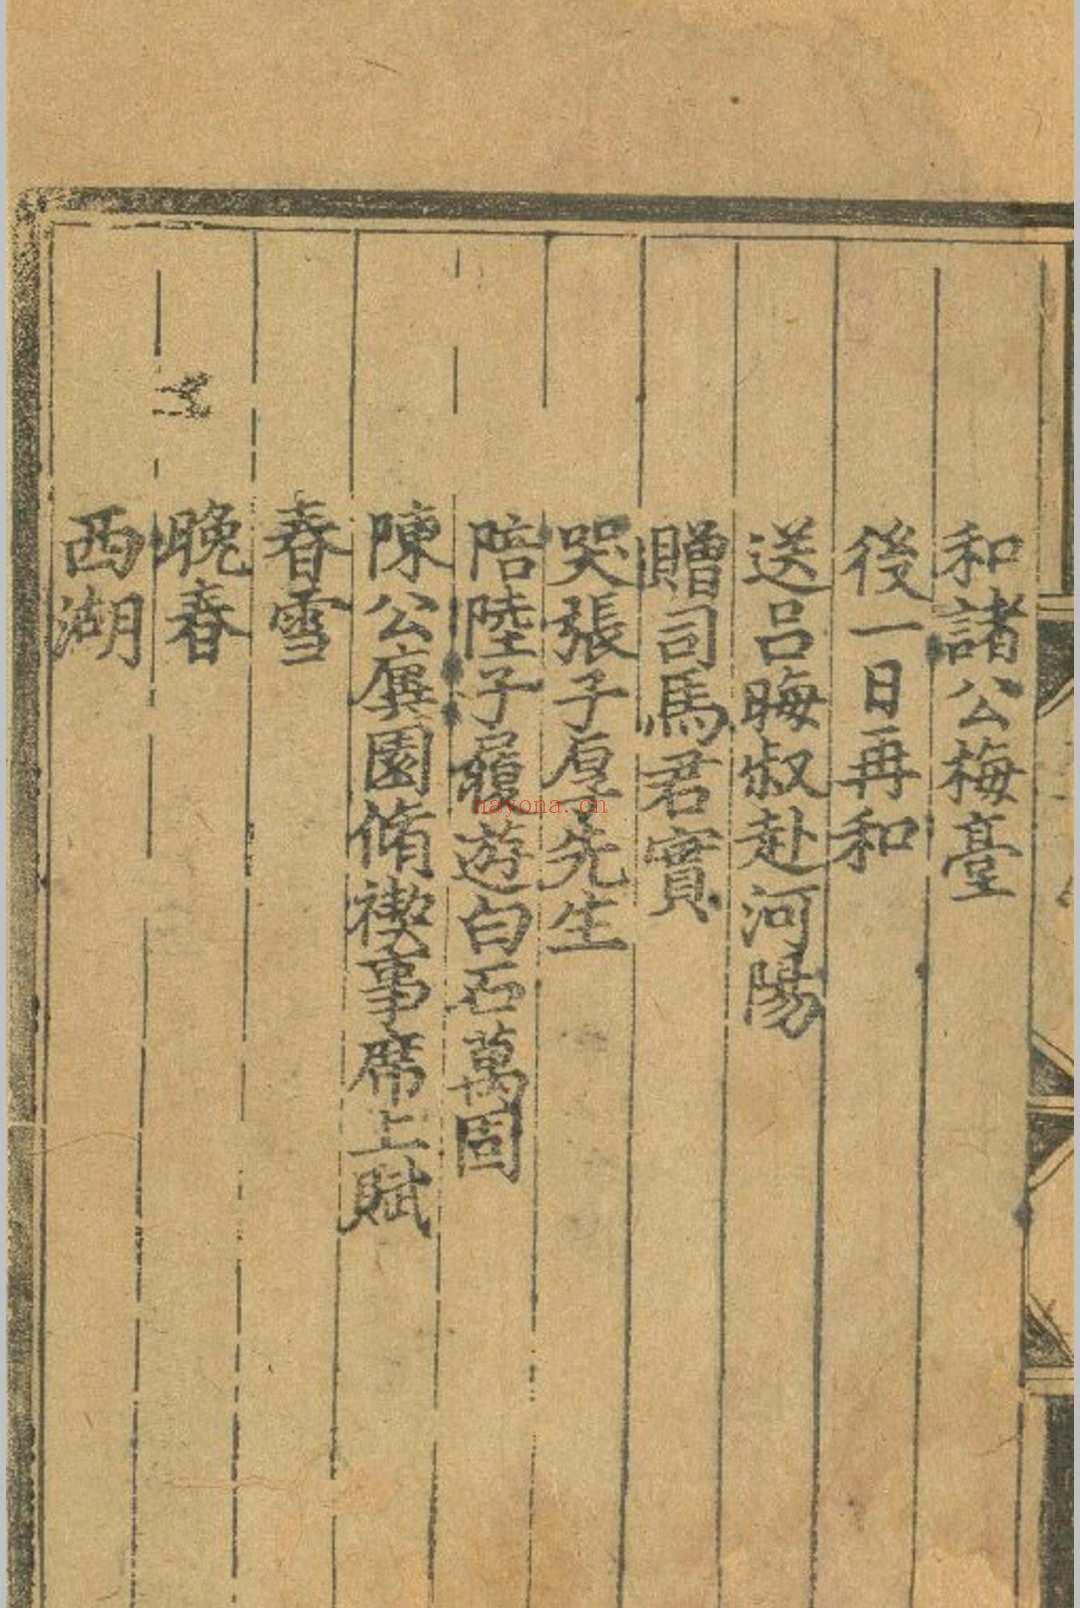 和諸公梅臺
後一日再和
送呂晦叔赴河陽
贈司馬君實
哭張子厚先生
陪陸子履遊白石萬固
陳公廙園脩禊事席上賦
春雪
晚春
西湖
hayona.cn